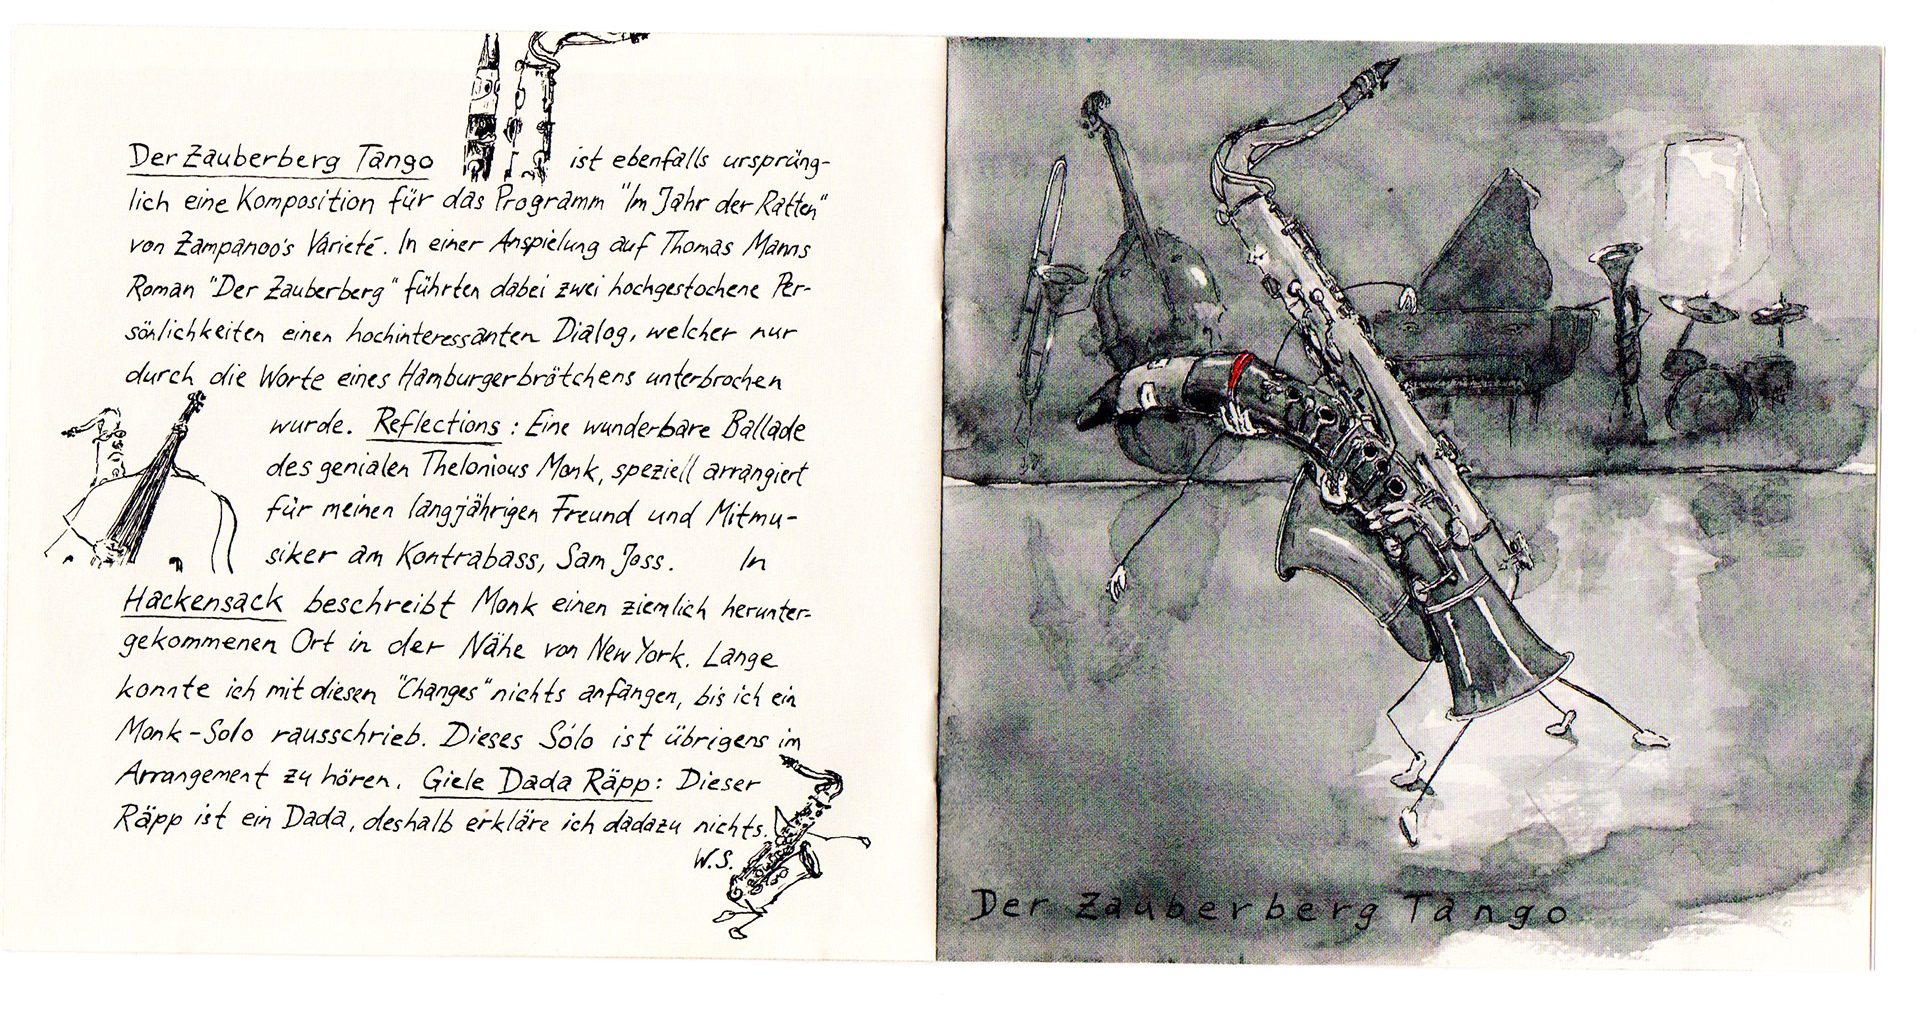 Der Zauberberg Tango ist ebenfalls ursprüng-
lich eine Komposition für das Programm "Im Jahr der Ratten"
von Zampanoo's Varieté. In einer Anspielung auf Thomas Manns
Roman "Der Zauberberg" führten dabei zwei hochgestochene Per-
sönlichkeiten einen hochinteressanten Dialog, welcher nur
durch die Worte eines Hamburgerbrötchens unterbrochen
wurde. Reflections: Eine wunderbare Ballade
des genialen Thelonious Monk, speziell arrangiert
für meinen langjährigen Freund und Mitmu-
siker am Kontrabass, Sam Joss. In
Hackensack beschreibt Monk einen ziemlich herunter-
gekommenen Ort in der Nähe von New York. Lange
konnte ich mit diesen "Changes" nichts anfangen, bis ich ein
Monk-Solo rausschrieb. Dieses Solo ist übrigens im
Arrangement zu hören. Giele Dada Räpp: Dieser
Räpp ist ein Dada, deshalb erkläre ich dadazu nichts.
W.S.
Der Zauberberg Tango